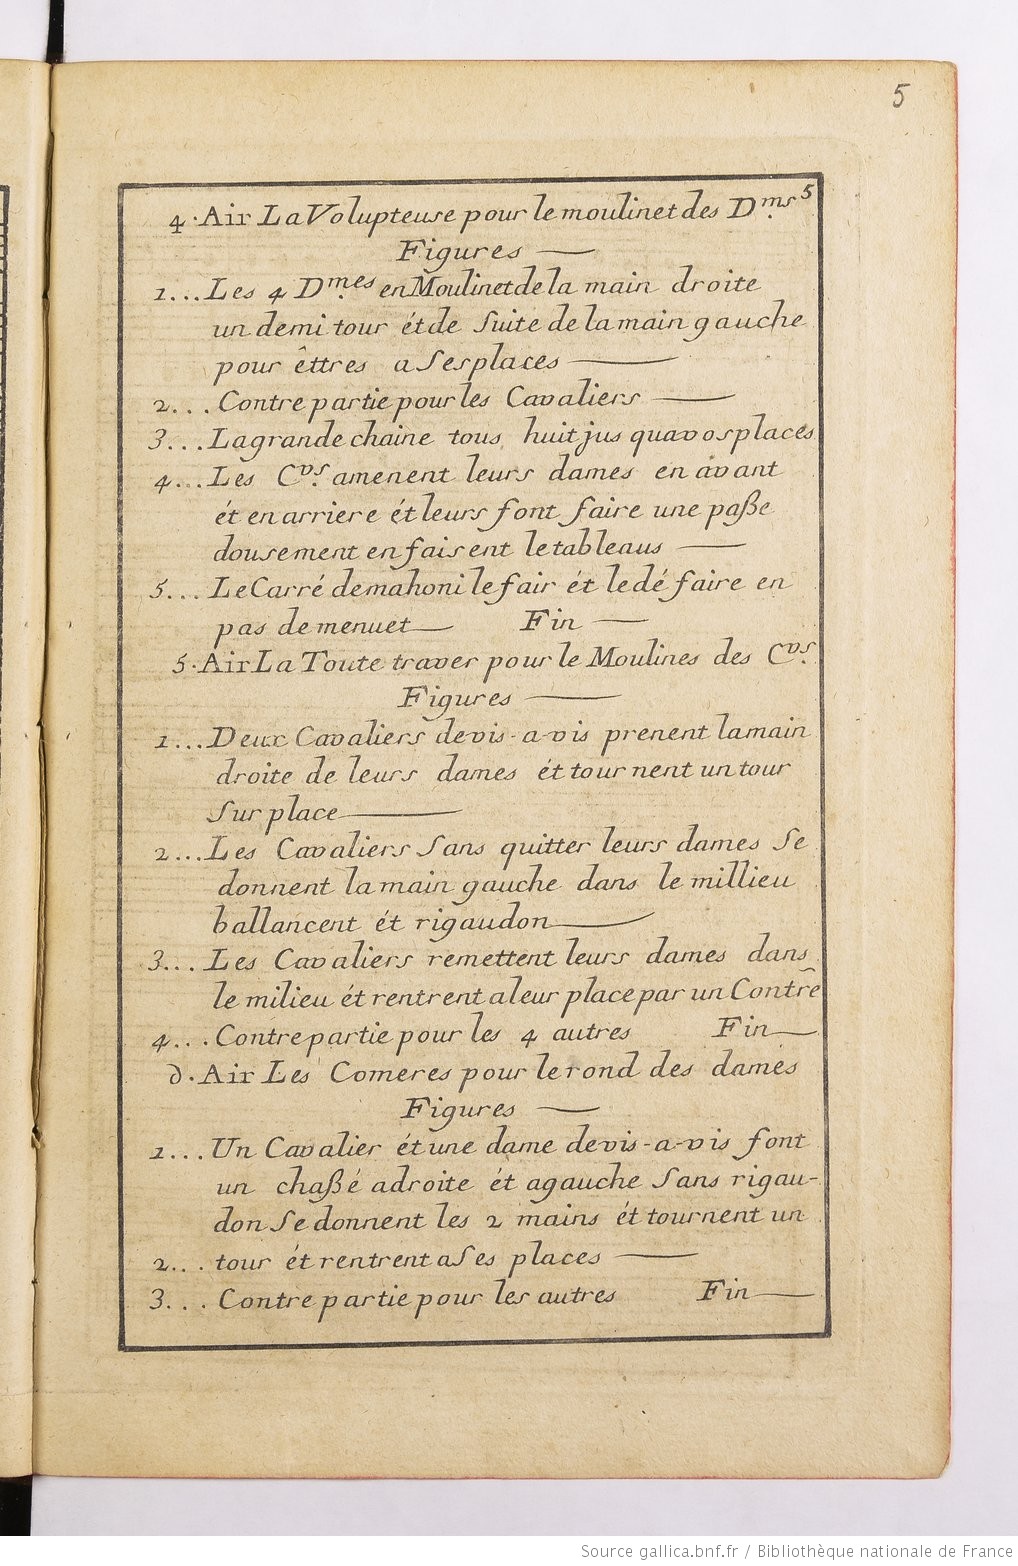 5
5
4. Air La Volupteuse pour le moulinet des D.ms
Figures —
1... Les 4 D.mes en Moulinet de la main droite
un demi tour ét de suite de la main gauche
pour êttres a ses places —
2... Contre partie pour les Cavaliers —
3... La grande chaine tous huit jus qua vos places
4... Les C.vs amenent leurs dames en avant
ét en arriere ét leurs font faire une paße
dousement en faisent le tableaus —
5... Le Carré de mahoni le fair ét le dé faire en
pas de menuet — Fin —
5. Air La Toute traver pour le Moulines des C.vs
Figures —
1... Deux Cavaliers devis-a-vis prenent la main
droite de leurs dames ét tournent un tour
sur place —
2... Les Cavaliers sans quitter leurs dames se
donnent la main gauche dans le millieu
ballancent ét rigaudon —
3... Les Cavaliers remettent leurs dames dans
le milieu ét rentrent a leur place par un Contr̃e
4... Contre partie pour les 4 autres Fin —
∂. Air Les Comeres pour le rond des dames
Figures —
1... Un Cavalier ét une dame devis-a-vis font
un chaßé a droite ét a gauche sans rigau-
don se donnent les 2 mains ét tournent un
2... tour ét rentrent a ses places —
3... Contre partie pour les autres Fin —
Source gallica.bnf.fr / Bibliothèque nationale de France